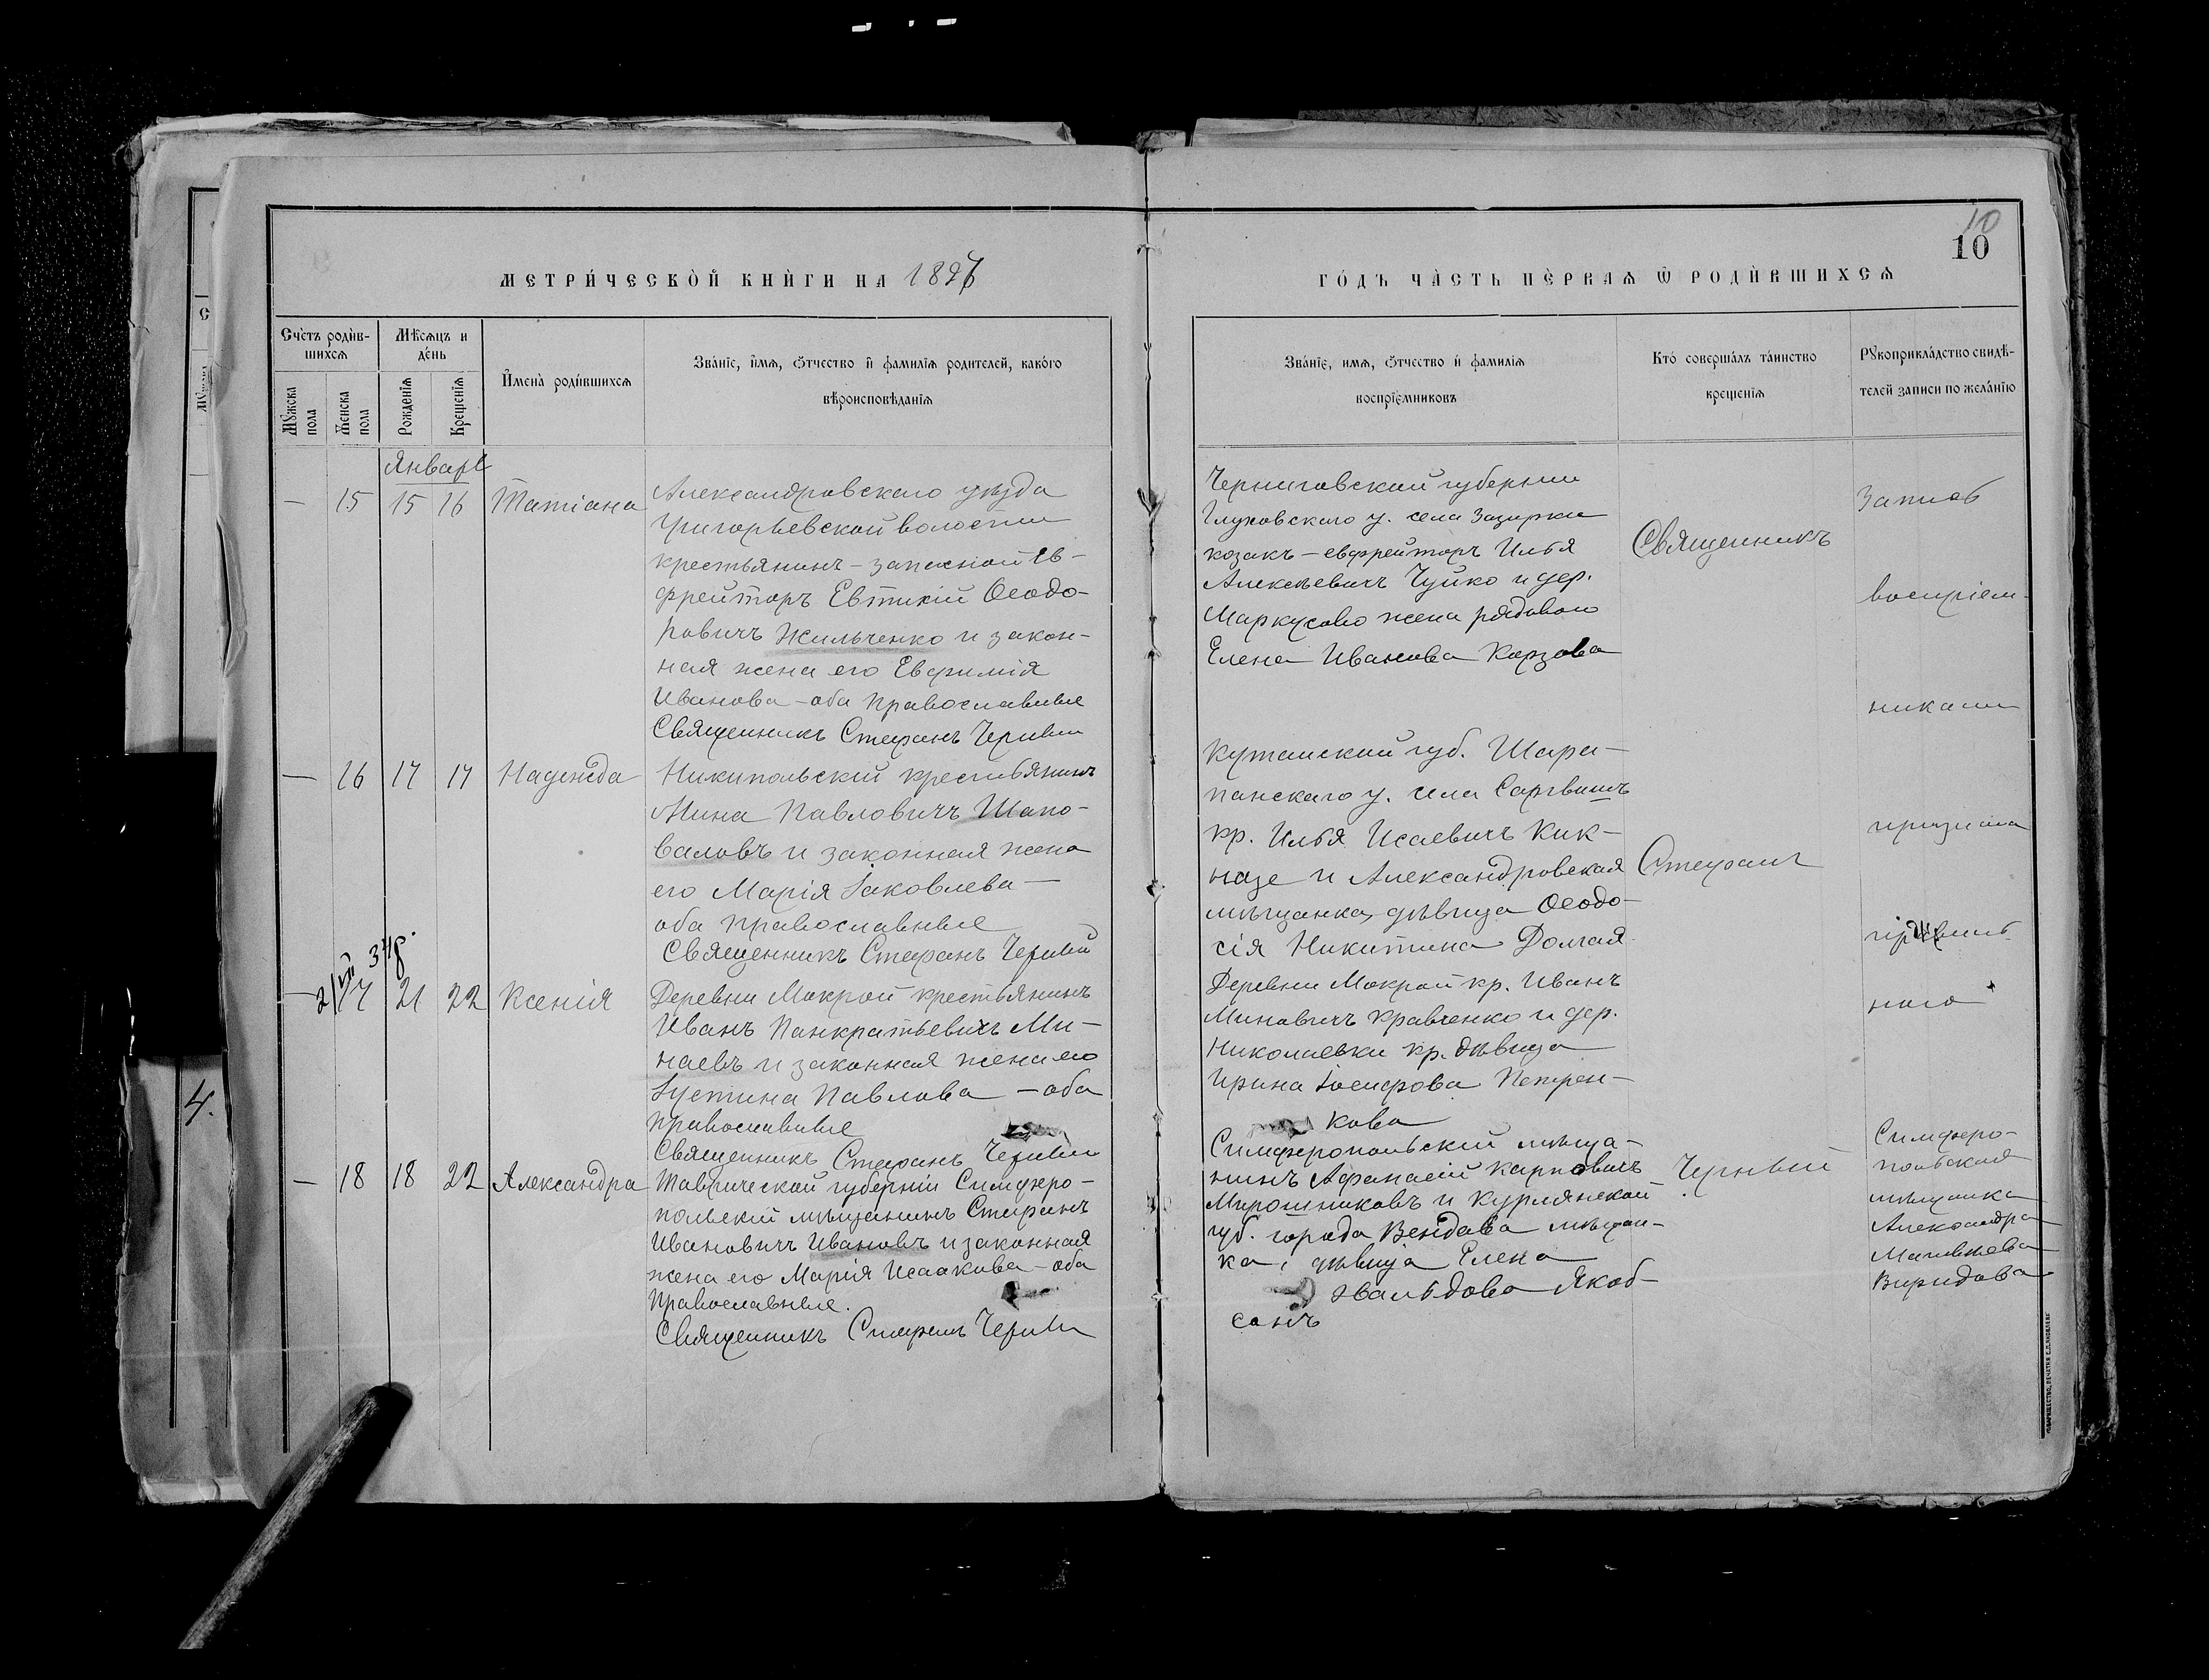 10
10
МЕТРИЧЕСКОЙ КНИГИ НА 1897
ГОДЪ ЧАСТЬ ПЕРВАЯ Ѿ РОДИВШИХСЯ
Счетъ родив-
шихся
Мѣсяцъ и
день
Мужска
пола
Женска
пола
Рожденія
Крещенія
Имена родившихся
Званіе, имя, отчество и фамилія родителей, какого
вѣроисповѣданія
Званіе, имя, отчество и фамилія
воспріемниковъ
Кто совершалъ таинство
крещенія
Рукоприкладство свидѣ-
телей записи по желанію
Январь
— 15 15 16 Татіана
Александровскаго уѣзда
Григорьевской волости
крестьянинъ - запасной Ев-
фрейторъ Евтихій Ѳеодо-
ровичъ Жильченко и закон-
ная жена его Евфимія
Иванова - оба православные
Священникъ Стефанъ Черный
Черниговской губерніи
Глуховскаго у. села
козакъ - евфрейторъ Илья
Алексѣевичъ Чуйко и дер.
Маркусово жена рядового
Елена Иванова Карзова
— 16 17 17 Надежда
Никипольскій крестьянинъ
Мина Павловичъ Шапо-
валовъ и законная жена
его Марія Іаковлева —
оба православные
Священникъ Стефанъ Черный
Кутаиской губ. Шара-
панскаго у. села
кр. Илья Исаевичъ Кик-
надзе и Александровская
мѣщанка, дѣвица Ѳеодо-
сія Никитина Долгая
— 17 21 22 Ксенія
Деревни Мокрой крестьянинъ
Иванъ Панкратьевичъ Ми-
наевъ и законная жена его
Іустина Павлова — оба
православные
Священникъ Стефанъ Черный
Деревни Мокрой кр. Иванъ
Миновичъ Кравченко и дер.
Николаевки кр. дѣвица
Ирина Іосифова Петрен-
кова
— 18 18 22 Александра
Таврической губерніи Симферо-
польскій мѣщанинъ Стефанъ
Ивановичъ Ивановъ и законная
жена его Марія Исаакова - оба
Православные.
Священникъ Стефанъ Черный
Симферопольскій мѣща-
нинъ Афанасій Карповичъ
Мирошниковъ и Курлянской
губ. города Вендава мѣщан-
ка, дѣвица Елена
Эвальдова Якоб-
сонъ
Священникъ
Стефанъ
Черный
Запись
воспріем-
никами
Симферо-
польская
мѣщанка
Александра
Матвѣева
4.